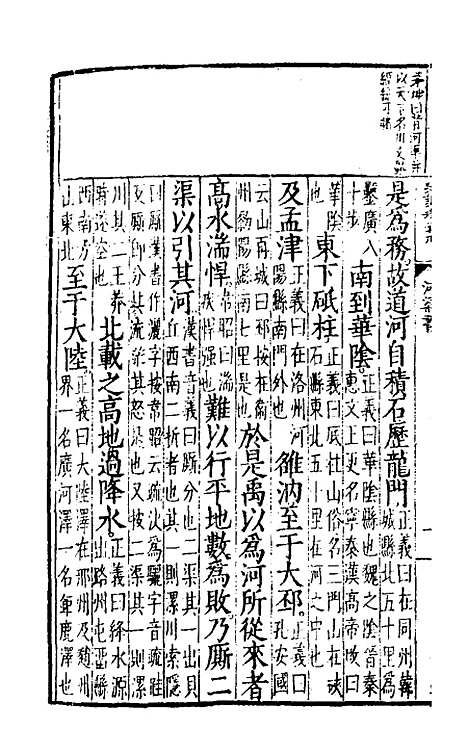 茅坤曰首河車并
以天下名川
是為務故道河自積石歷龍門正義曰在同州韓城縣北五十里
鑿廣八十步南到華陰正義曰華陰縣也魏之陰晉秦惠文王更名寧秦漢高帝改曰
華陰也東下砥柱正義曰底柱山俗名三門山在硤石縣東北五十里在河之中也
及孟津正義曰在洛州河陽縣南門外也雒汭至于大邳正義曰孔安國
云山再成曰邳按在衞州黎陽縣南七里是也於是禹以為河所從來者
高水湍悍韋昭曰湍疾悍強也難以行平地數為敗乃厮二
渠以引其河漢書音義曰厮分也二渠其一出貝丘西南二折者也其一則漯川索隱
曰厮漢書作灑字按韋昭云疏決為灑字音疏跬反厮即分其流泄其怒是也又按二渠其一則漯
川其二王莽時遂空也北載之高地過降水正義曰絳水源出潞州屯留縣
西南方山東北至于大陸正義曰大陸澤在邢州及趙州界一名廣河澤一名鉅鹿澤也